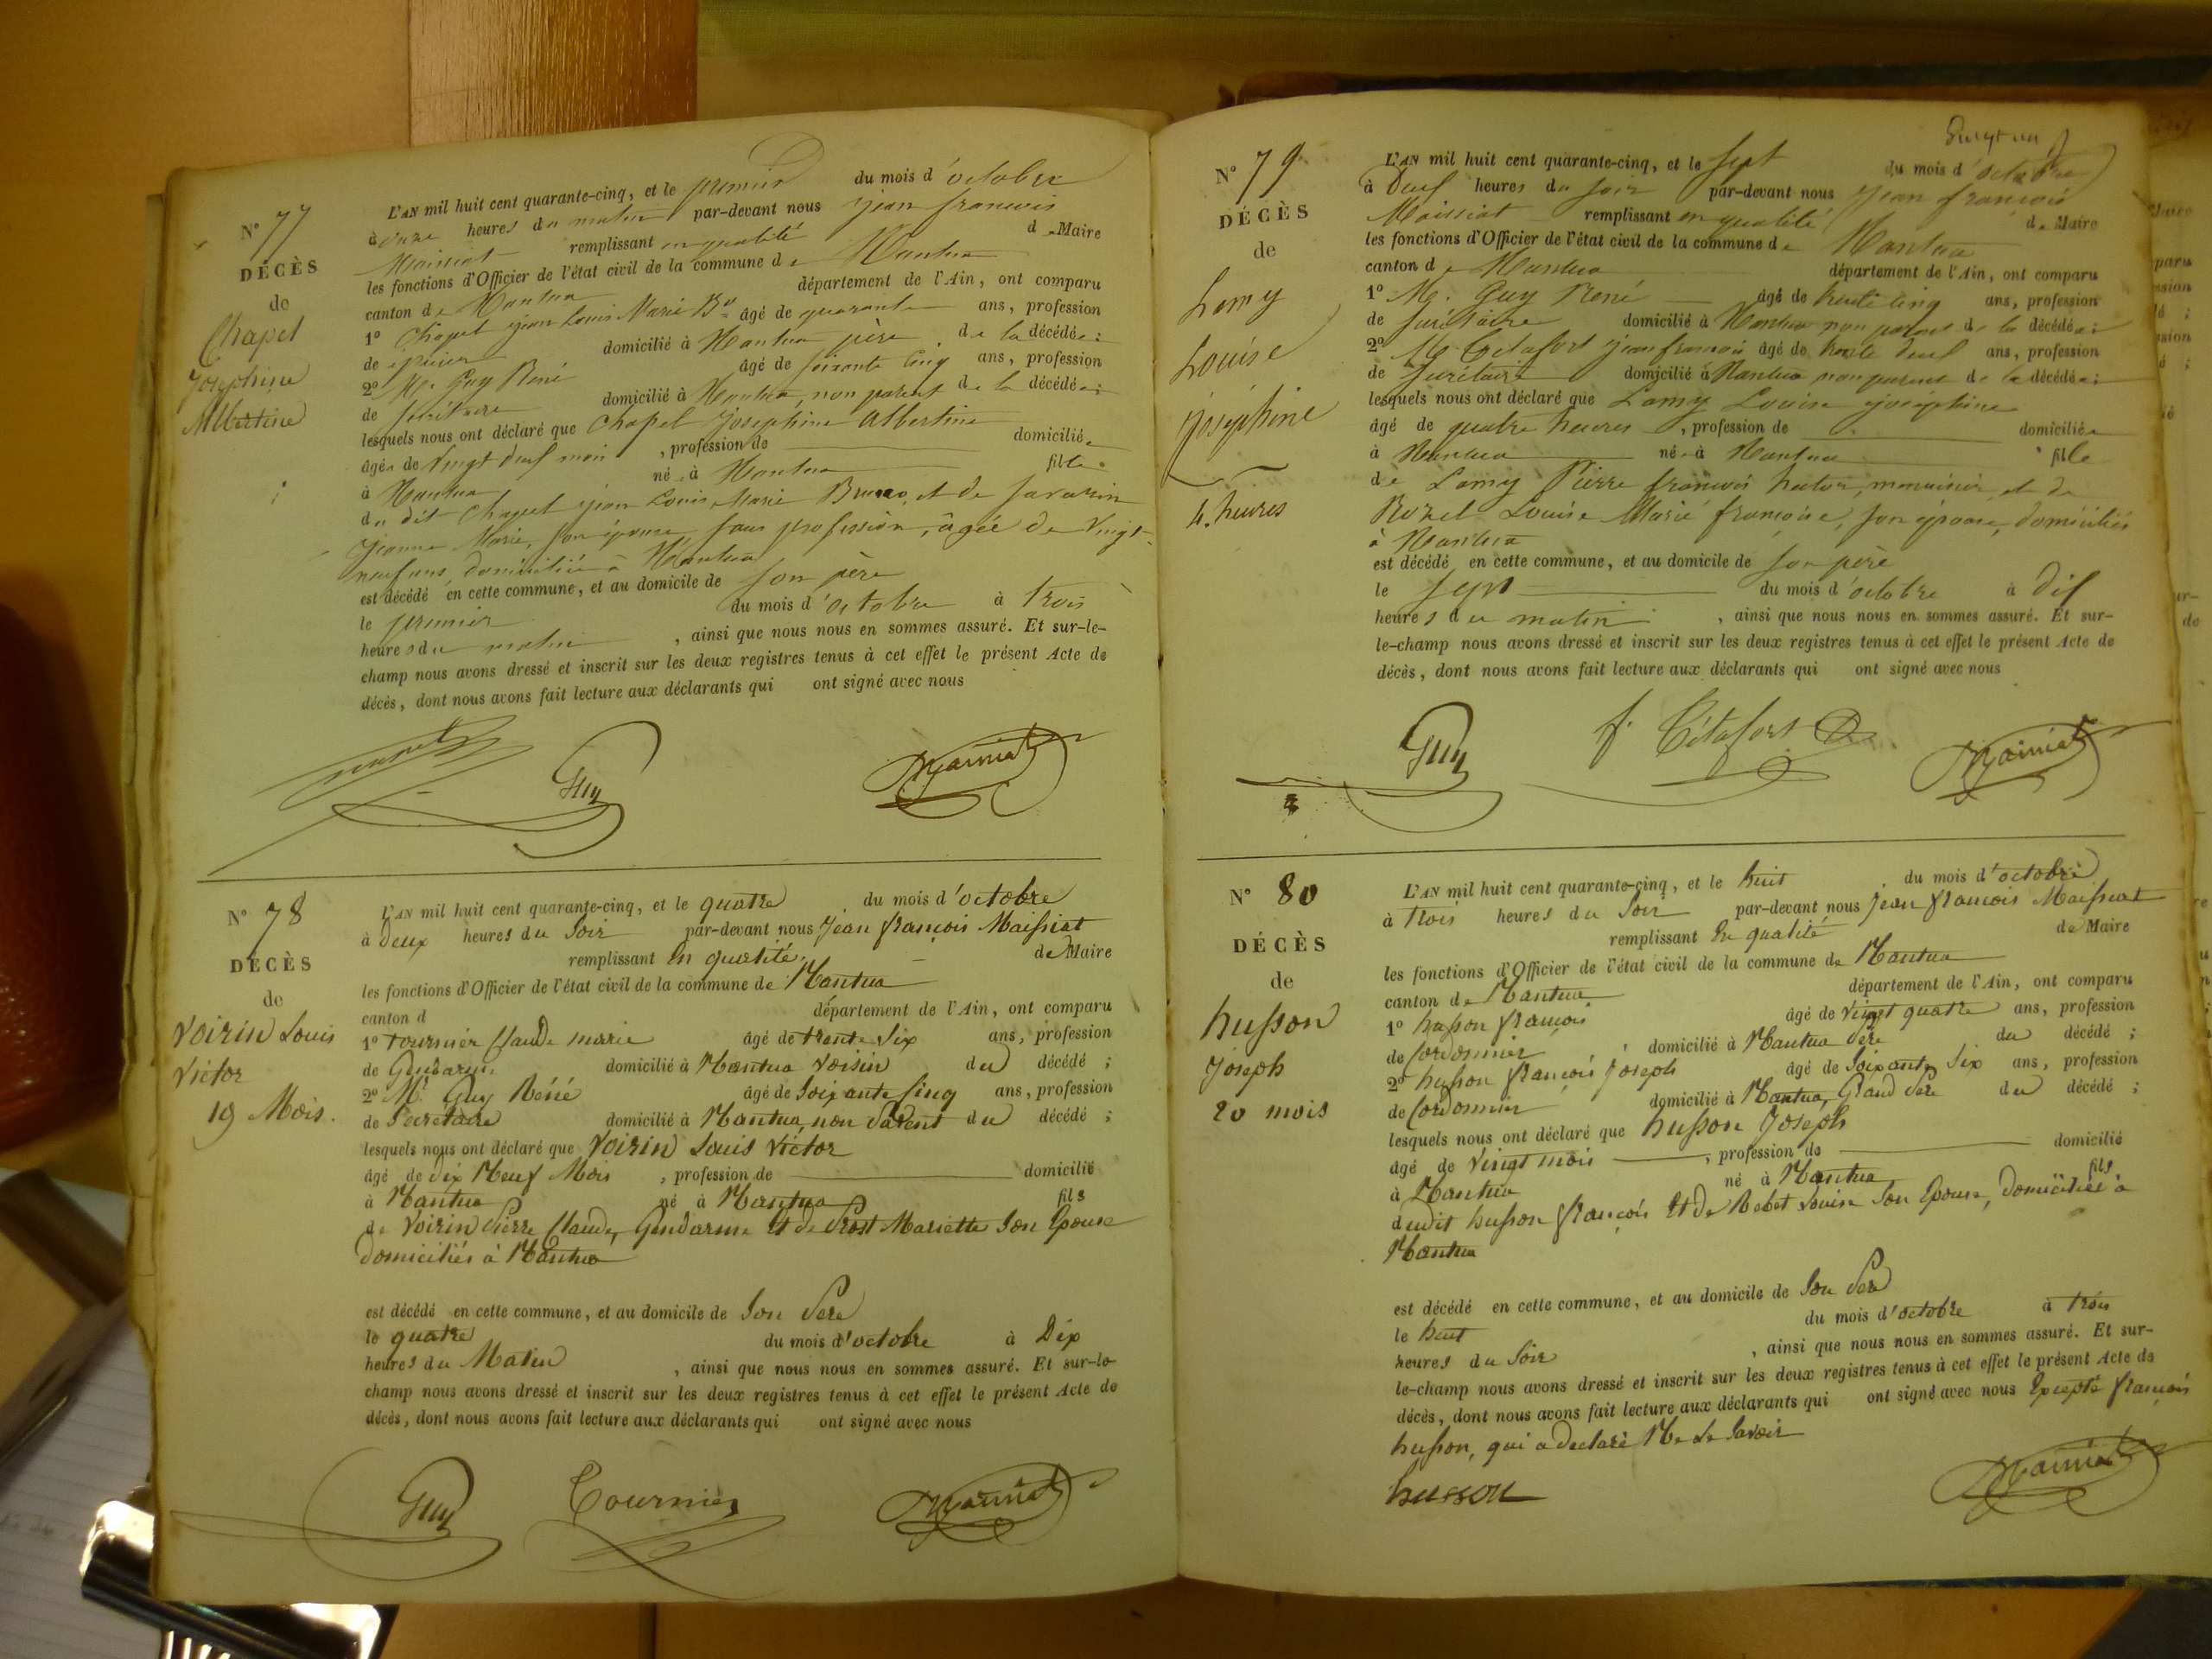 N° 77
DÉCÈS
de
Chapel
Josephine
Albertine
L'AN mil huit cent quarante-cinq, et le premier du mois d'octobre
à onze heures du matin par-devant nous jean francois
Maissiat remplissant en qualité de Maire
les fonctions d'Officier de l'état civil de la commune de Nantua
canton de Nantua département de l'Ain, ont comparu
1° Chapel jean Louis Marie Bo âgé de quarante ans, profession
de épicier domicilié à Nantua père de la décédée;
2° Mr. Guy René âgé de soixante cinq ans, profession
de secrétaire domicilié à Nantua, non parent de la décédée;
lesquels nous ont déclaré que Chapel Josephine Albertine
âgée de vingt deux mois, profession de domiciliée
à Nantua née à Nantua fille
du dit Chapel jean Louis Marie Bruno, et de Savarin
Jeanne Marie, son épouse sans profession, âgée de vingt-
neuf ans, domiciliée à Nantua
est décédé en cette commune, et au domicile de son père
le premier du mois d'octobre à trois
heures du matin, ainsi que nous nous en sommes assuré. Et sur-le-
champ nous avons dressé et inscrit sur les deux registres tenus à cet effet le présent Acte de
décès, dont nous avons fait lecture aux déclarants qui ont signé avec nous
Guy Maissiat
N° 78
DÉCÈS
de
Voirin Louis
Victor
19 Mois.
L'AN mil huit cent quarante-cinq, et le quatre du mois d'octobre
à deux heures du Soir par-devant nous Jean françois Maissiat
remplissant En qualité de Maire
les fonctions d'Officier de l'état civil de la commune de Nantua
canton d département de l'Ain, ont comparu
1° Tournier Claude marie âgé de trente Six ans, profession
de Gendarme domicilié à Nantua Voisin du décédé;
2° Mr Guy Réné âgé de Soixante Cinq ans, profession
de Secrétaire domicilié à Nantua, non Parent du décédé;
lesquels nous ont déclaré que Voirin Louis Victor
âgé de dix Neuf Mois, profession de domicilié
à Nantua né à Nantua fils
de Voirin Pierre Claude, Gendarme Et de Prost Mariette Son Epouse
domiciliés à Nantua
est décédé en cette commune, et au domicile de Son Père
le quatre du mois d'octobre à Dix
heures du Matin, ainsi que nous nous en sommes assuré. Et sur-le-
champ nous avons dressé et inscrit sur les deux registres tenus à cet effet le présent Acte de
décès, dont nous avons fait lecture aux déclarants qui ont signé avec nous
Guy Tournier Maissiat
N° 79
DÉCÈS
de
Lamy
Louise
Joséphine
4 heures
L'AN mil huit cent quarante-cinq, et le sept du mois d'octobre
à Deux heures du soir par-devant nous Jean françois
Maissiat remplissant en qualité de Maire
les fonctions d'Officier de l'état civil de la commune de Nantua
canton de Nantua département de l'Ain, ont comparu
1° Mr. Guy René âgé de ans, profession
de secrétaire domicilié à Nantua non parent de la décédée;
2° Mr Cétafort jean françois âgé de trente deux ans, profession
de secrétaire domicilié à Nantua non parent de la décédée;
lesquels nous ont déclaré que Lamy Louise joséphine
âgé de quatre heures, profession de domiciliée
à Nantua née à Nantua fille
de Lamy Pierre françois hector, menuisier, et de
Rozet Louise Marie françoise, son épouse, domiciliés
à Nantua
est décédé en cette commune, et au domicile de son père
le sept du mois d'octobre à dix
heures du matin, ainsi que nous nous en sommes assuré. Et sur-
le-champ nous avons dressé et inscrit sur les deux registres tenus à cet effet le présent Acte de
décès, dont nous avons fait lecture aux déclarants qui ont signé avec nous
Guy f. Cétafort Maissiat
N° 80
DÉCÈS
de
husson
Joseph
20 mois
L'AN mil huit cent quarante-cinq, et le huit du mois d'octobre
à trois heures du Soir par-devant nous Jean françois Maissiat
remplissant En qualité de Maire
les fonctions d'Officier de l'état civil de la commune de Nantua
canton de Nantua département de l'Ain, ont comparu
1° husson françois âgé de vingt quatre ans, profession
de Cordonnier domicilié à Nantua Père du décédé;
2° husson françois Joseph âgé de Soixante Six ans, profession
de Cordonnier domicilié à Nantua, Grand Père du décédé;
lesquels nous ont déclaré que husson Joseph
âgé de vingt mois, profession de domicilié
à Nantua né à Nantua fils
dudit husson françois Et de Rebet Louise Son Epouse, domiciliés à
Nantua
est décédé en cette commune, et au domicile de Son Père
le huit du mois d'octobre à trois
heures du Soir, ainsi que nous nous en sommes assuré. Et sur-
le-champ nous avons dressé et inscrit sur les deux registres tenus à cet effet le présent Acte de
décès, dont nous avons fait lecture aux déclarants qui ont signé avec nous Excepté françois
husson, qui a declaré Ne le Savoir
husson Maissiat